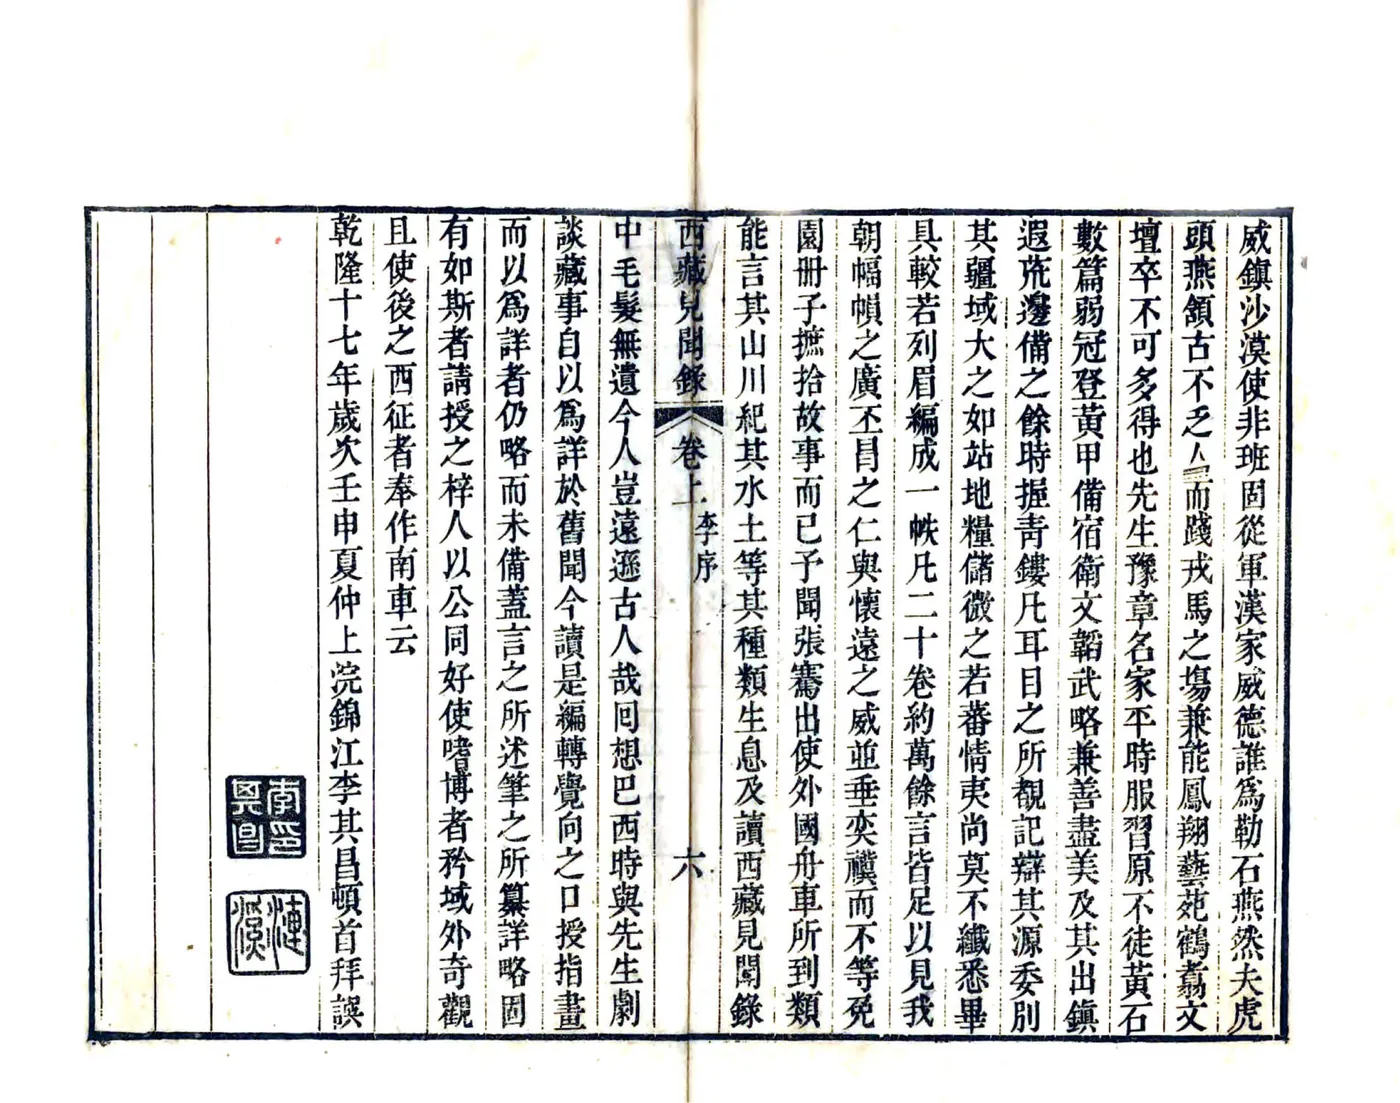 威鎭沙漠使非班固從軍漢家威德誰爲勒石燕然夫虎
頭燕頷古不乏人而踐戎馬之塲兼能鳳翔藝苑鶴翥文
壇卒不可多得也先生豫章名家平時服習原不徒黃石
數篇弱冠登黃甲備宿衛文韜武略兼善盡美及其出鎭
遐荒邊備之餘時握靑鏤凡耳目之所覩記辯其源委別
其疆域大之如站地糧儲微之若蕃情夷尚莫不纖悉畢
具較若列眉編成一帙凡二十卷約萬餘言皆足以見我
朝幅幀之廣丕昌之仁與懷遠之威並垂奕禩而不等兔
園冊子摭拾故事而已予聞張騫出使外國舟車所到類
能言其山川紀其水土等其種類生息及讀西藏見聞錄
西藏見聞錄 卷上 李序 六
中毛髮無遺今人豈遠遜古人哉囘想巴西時與先生劇
談藏事自以爲詳於舊聞今讀是編轉覺向之口授指畫
而以爲詳者仍略而未備蓋言之所述筆之所纂詳略固
有如斯者請授之梓人以公同好使嗜博者矜域外奇觀
且使後之西征者奉作南車云
乾隆十七年歲次壬申夏仲上浣錦江李其昌頓首拜譔
李印其昌
漣溪